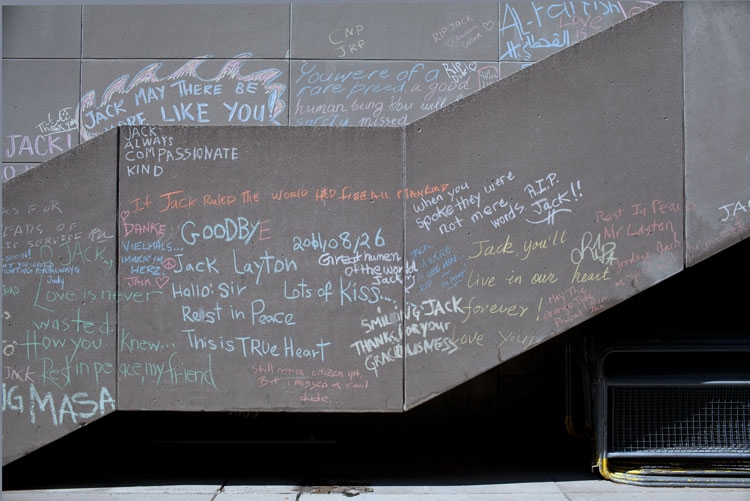 CNP
JRP
RIP JACK
Love
القطط
JACK MAY THERE BE
MORE LIKE YOU!
You were of a
rare breed, a good
human being. You will
sorely missed
RIP
Thank you
JACK!
JACK
ALWAYS
COMPASSIONATE
KIND
If JACK RULED THE WORLD HED FREE ALL MANKIND
DANKE
VIELMALS...
IMMER IM
HERZ
JACK
GOODBYE
Jack Layton
Hallo! Sir
Reist in Peace
This is TRUE Heart
2011/08/26
Great human
of the world
Jack
Lots of Kiss...
when you
spoke they were
not mere
words
R.I.P.
Jack!!
SMILING JACK
THANKS FOR YOUR
GRACIOUSNESS
Jack, you'll
live in our heart
forever!
Love you
RIP
Rest In Peace
Mr Layton
Goodbye
Still not a citizen yet,
But I missed a cool
dude...
S FOR
SERVICE
JACK,
Judy
Love is never
wasted
How you Knew...
JACK
Rest in peace, my friend
NG MASA